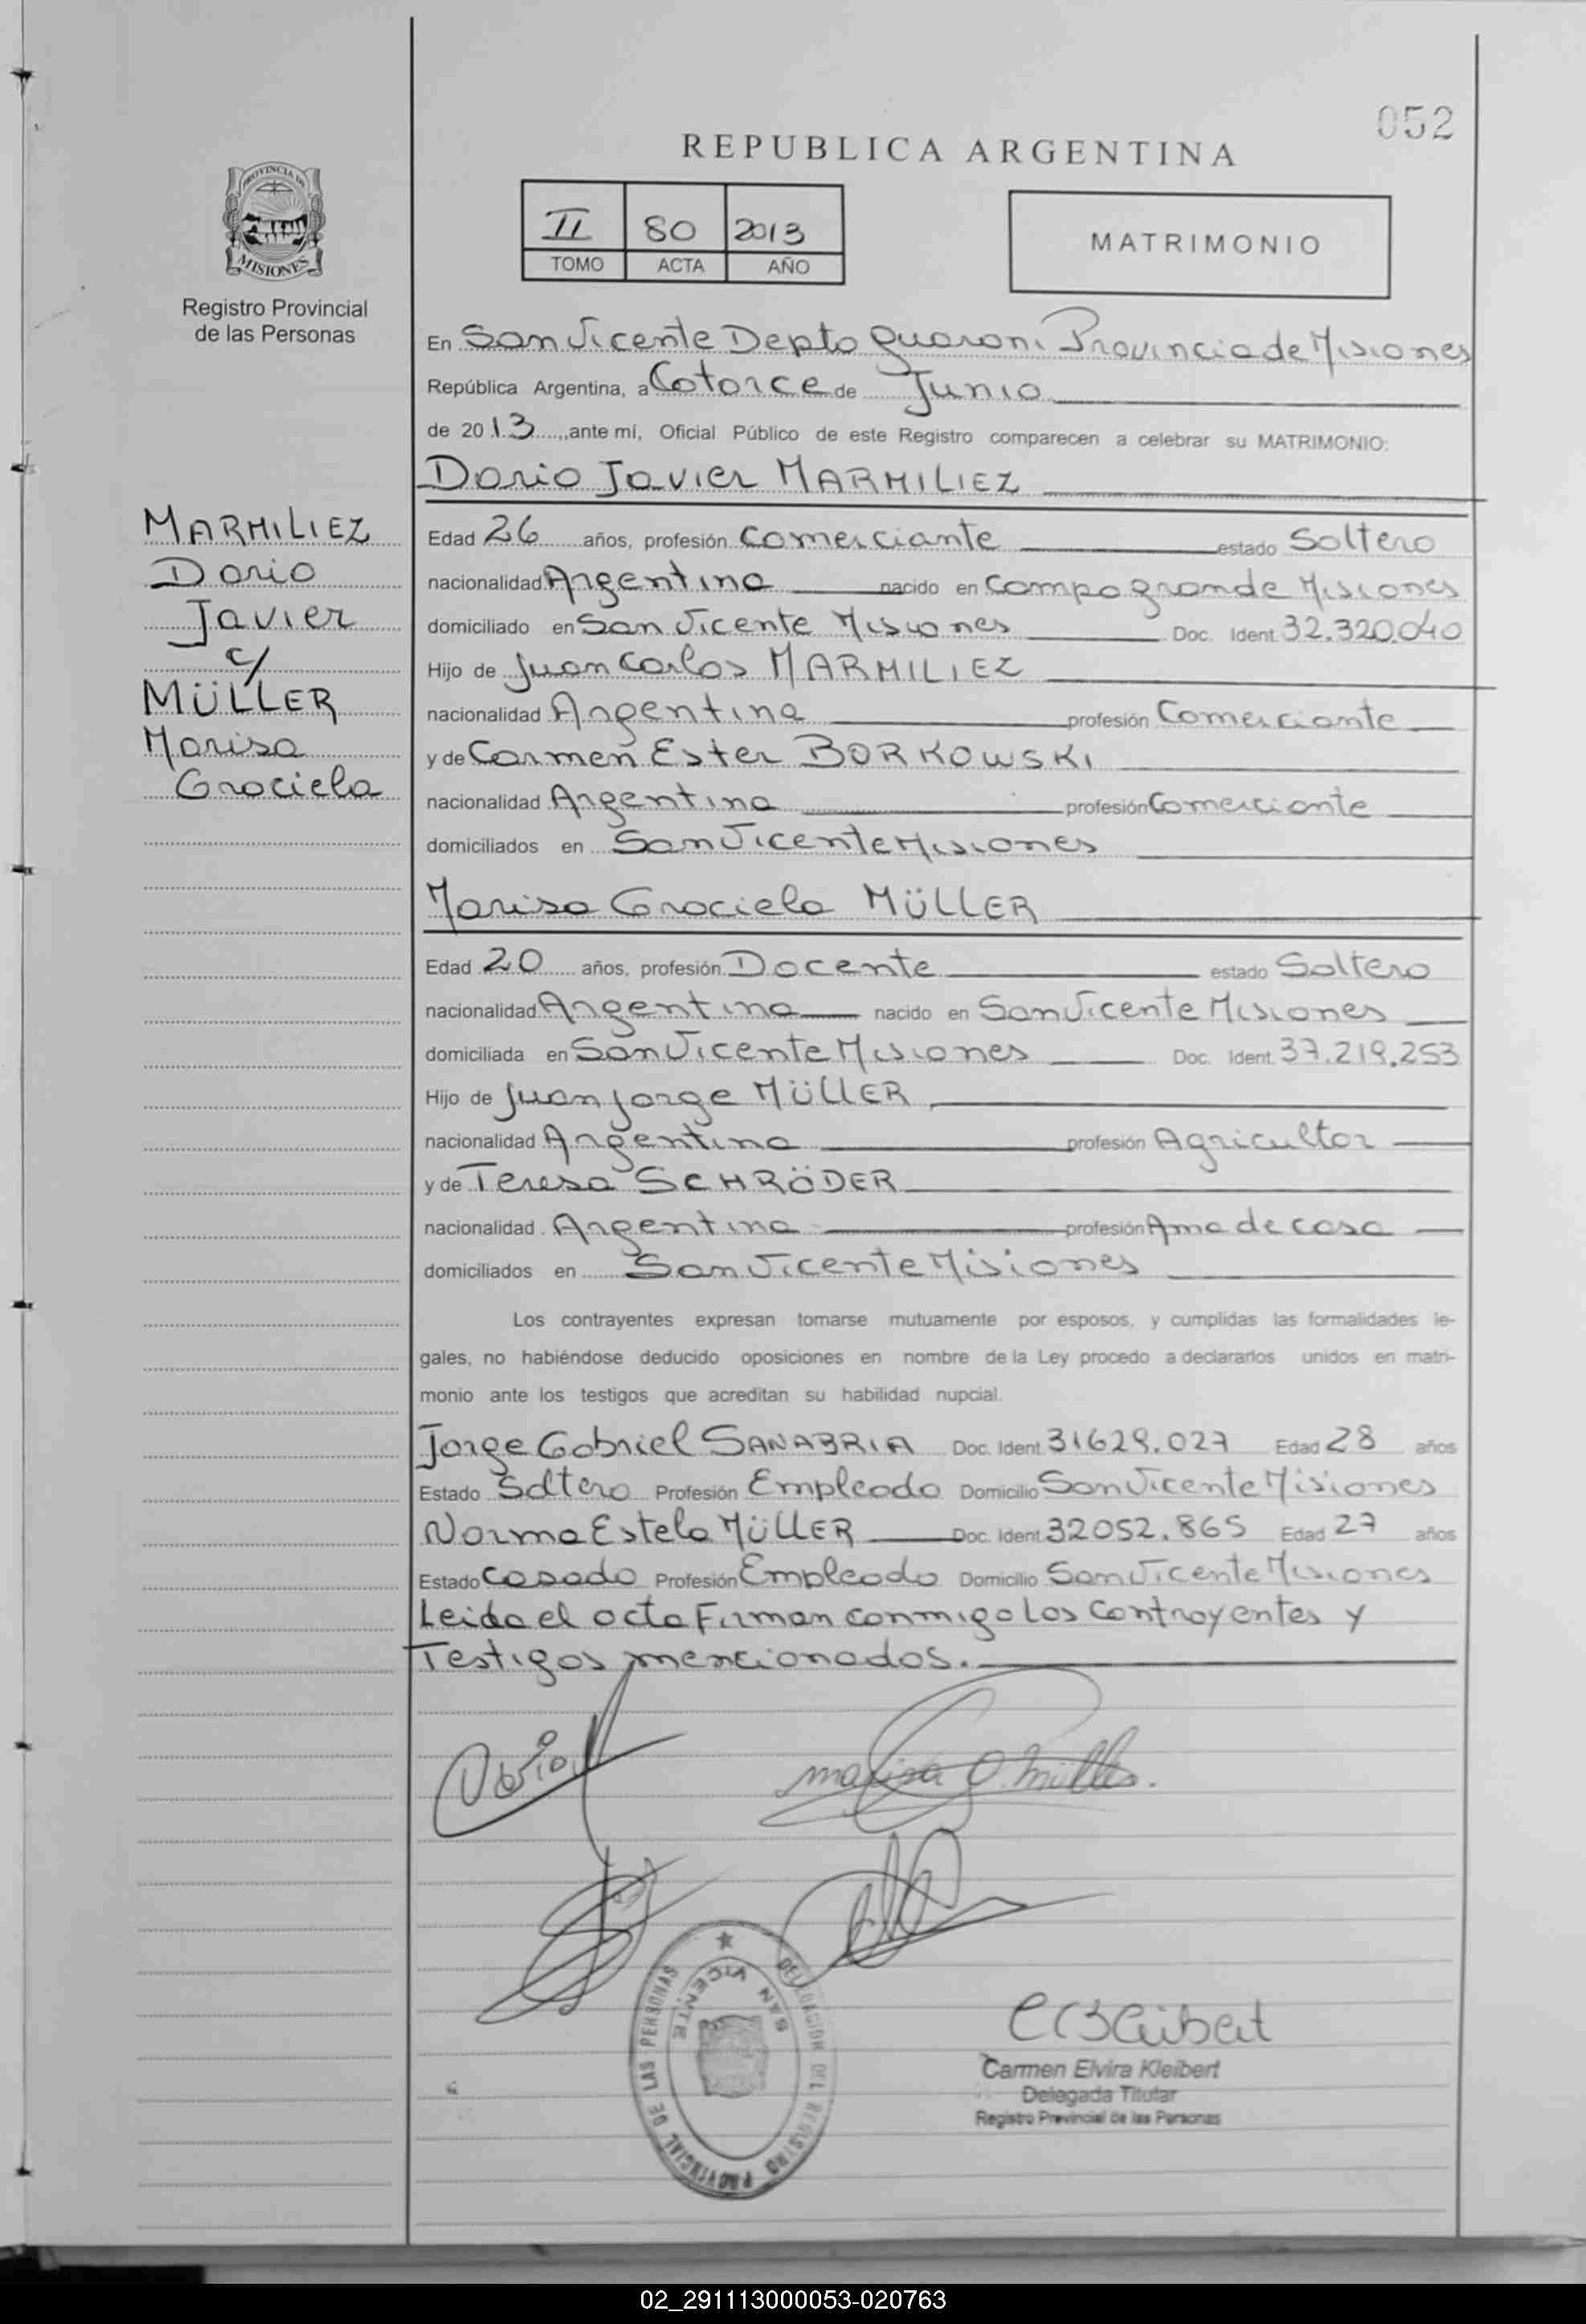 052
REPUBLICA ARGENTINA
PROVINCIA DE
MISIONES
Registro Provincial
de las Personas
II 80 2013
TOMO ACTA AÑO
MATRIMONIO
En San Vicente Depto Guarani Provincia de Misiones
República Argentina, a Catorce de Junio
de 2013, ante mí, Oficial Público de este Registro comparecen a celebrar su MATRIMONIO:
Dario Javier MARMILIEZ
MARMILIEZ
Dario
Javier
c/
MÜLLER
Marisa
Graciela
Edad 26 años, profesión Comerciante estado Soltero
nacionalidad Argentina nacido en Campo grande Misiones
domiciliado en San Vicente Misiones Doc. Ident. 32.320.040
Hijo de Juan Carlos MARMILIEZ
nacionalidad Argentina profesión Comerciante
y de Carmen Ester BORKOWSKI
nacionalidad Argentina profesión Comerciante
domiciliados en San Vicente Misiones
Marisa Graciela MÜLLER
Edad 20 años, profesión Docente estado Soltero
nacionalidad Argentina nacido en San Vicente Misiones
domiciliada en San Vicente Misiones Doc. Ident. 37.219.253
Hijo de Juan Jorge MÜLLER
nacionalidad Argentina profesión Agricultor
y de Teresa SCHRÖDER
nacionalidad Argentina profesión Ama de casa
domiciliados en San Vicente Misiones
Los contrayentes expresan tomarse mutuamente por esposos, y cumplidas las formalidades le-
gales, no habiéndose deducido oposiciones en nombre de la Ley procedo a declararlos unidos en matri-
monio ante los testigos que acreditan su habilidad nupcial.
Jorge Gabriel SANABRIA Doc. Ident. 31629.027 Edad 28 años
Estado Soltero Profesión Empleado Domicilio San Vicente Misiones
Norma Estela MÜLLER Doc. Ident. 32052.865 Edad 27 años
Estado Casado Profesión Empleado Domicilio San Vicente Misiones
Leida el acta Firman conmigo Los Contrayentes y
Testigos mencionados.
marisa G. müller.
DELEGACION DEL REGISTRO PROVINCIAL DE LAS PERSONAS
SAN VICENTE
Carmen Elvira Kleibert
Delegada Titular
Registro Provincial de las Personas
02_291113000053-020763